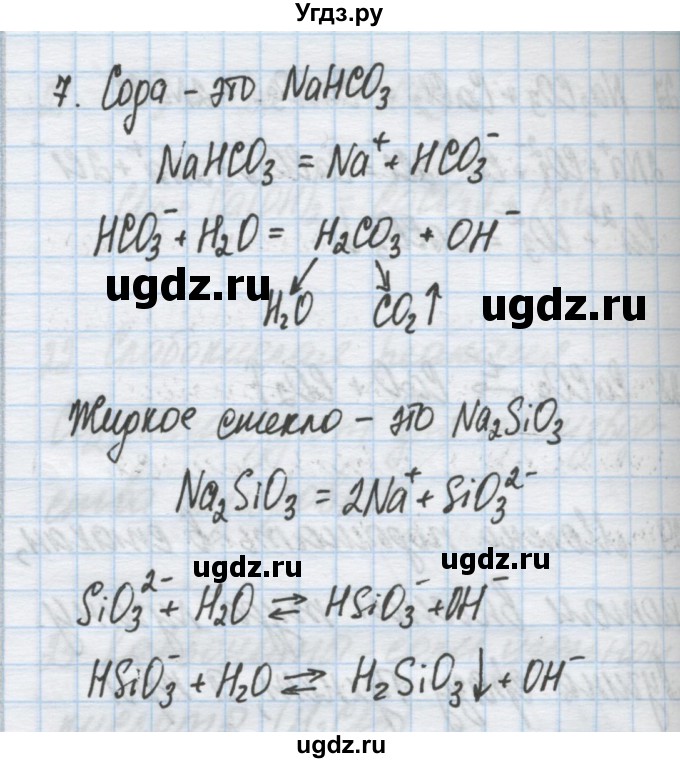 Угдз.ру
7. Сода - это NaHCO₃
NaHCO₃ = Na⁺ + HCO₃⁻
HCO₃⁻ + H₂O = H₂CO₃ + OH⁻
ugdz.ru ugdz.ru
H₂O CO₂↑
Жидкое стекло - это Na₂SiO₃
Na₂SiO₃ = 2Na⁺ + SiO₃²⁻
ugdz.ru ugdz.ru
SiO₃²⁻ + H₂O ⇄ HSiO₃⁻ + OH⁻
HSiO₃⁻ + H₂O ⇄ H₂SiO₃↓ + OH⁻
ugdz.ru